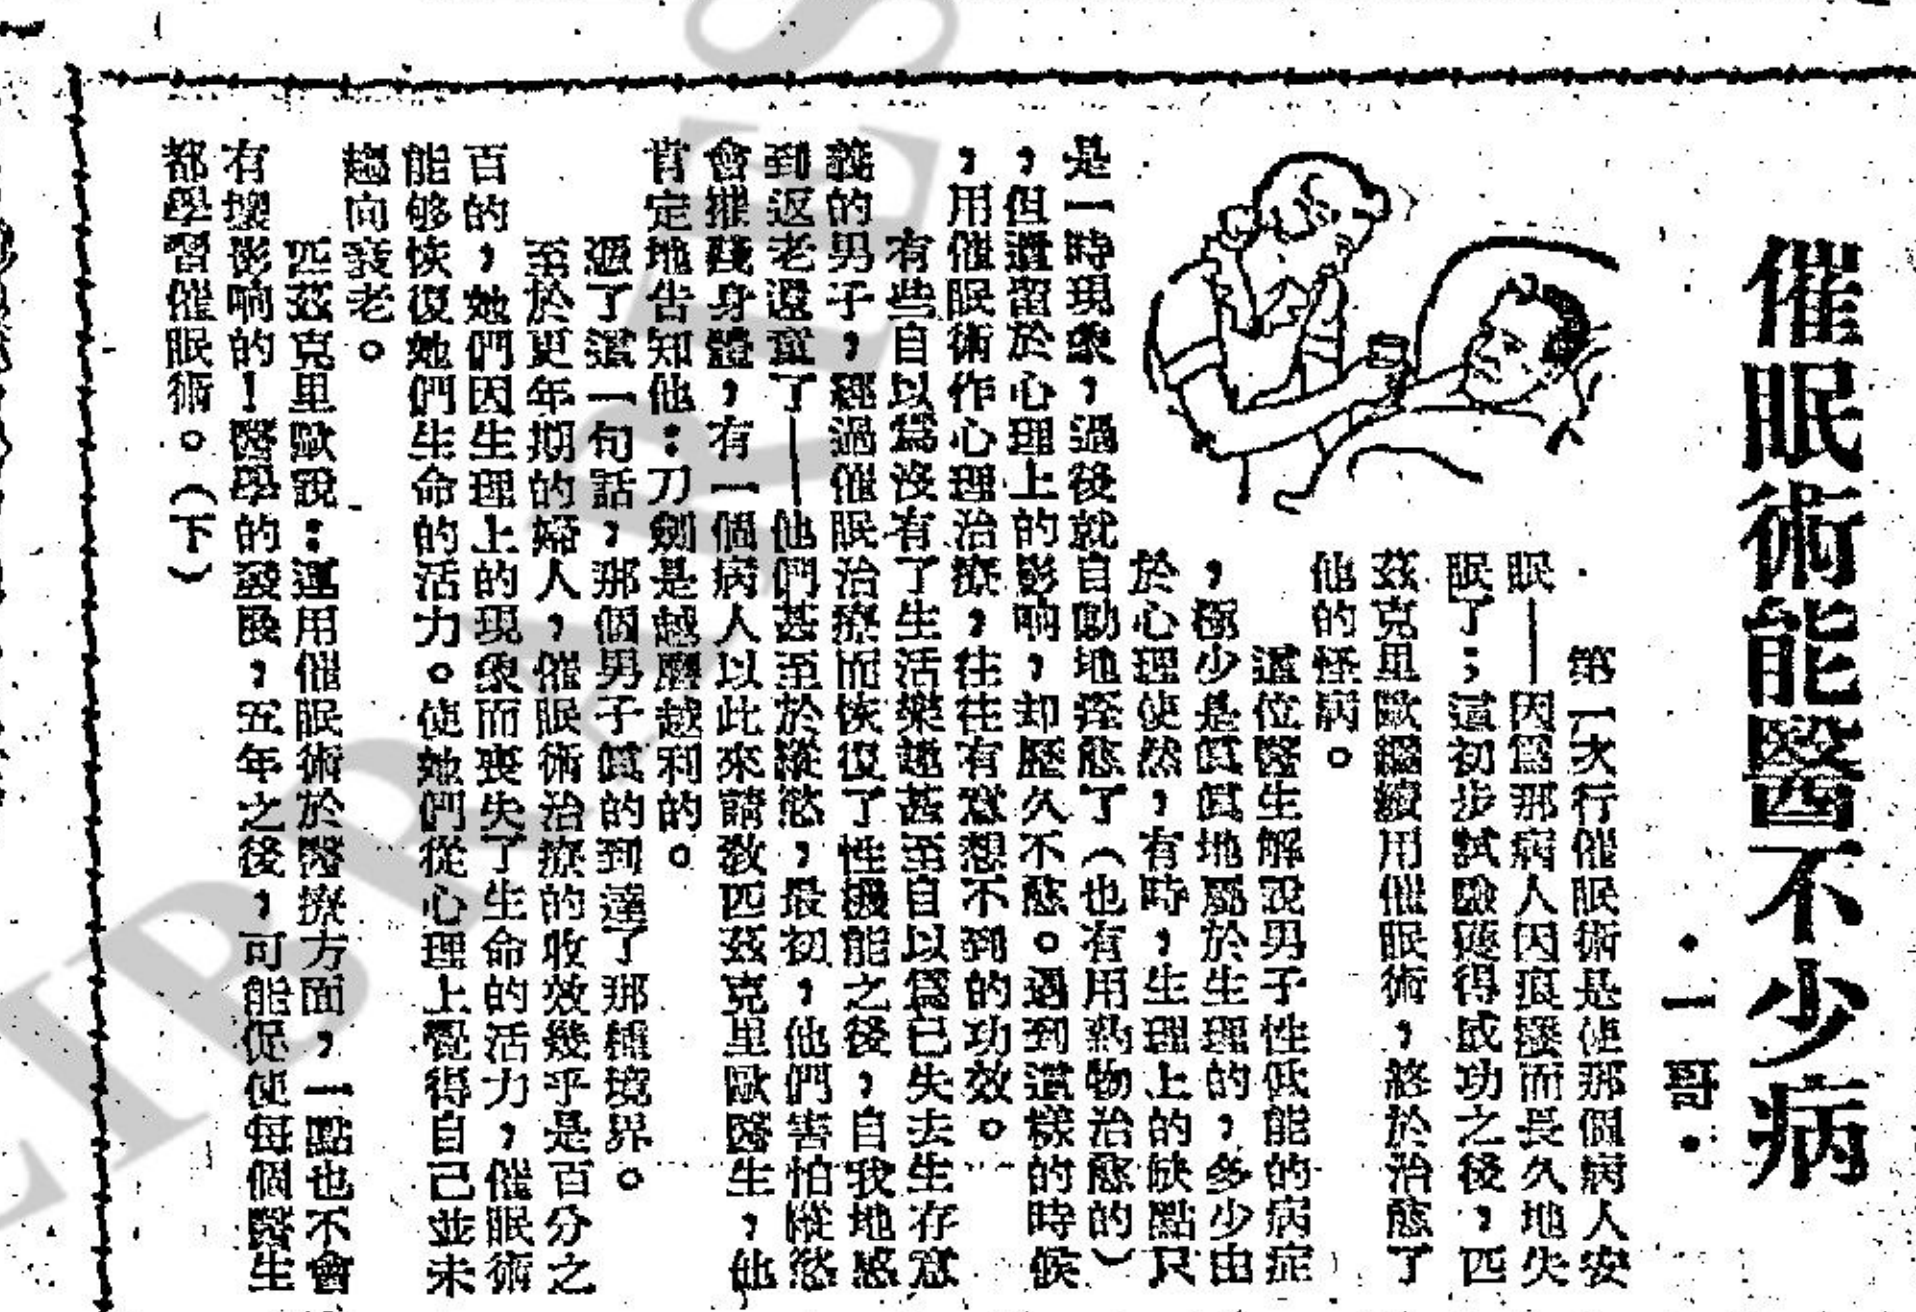 催眠術能醫不少病
·一哥·
第一次行催眠術是使那個病人安
眠——因爲那病人因哀愁而長久地失
眠了；這初步試驗獲得成功之後，匹
茲克里歐繼續用催眠術，終於治愈了
他的怪病。
這位醫生解說男子性低能的病症
，極少是眞眞地屬於生理的，多少由
於心理使然，有時，生理上的缺點只
是一時現象，過後就自動地痊愈了（也有用葯物治愈的）
，但遺留於心理上的影响，却歷久不愈。遇到這樣的時候
，用催眠術作心理治療，往往有意想不到的功效。
有些自以爲沒有了生活樂趣甚至自以爲已失去生存意
義的男子，經過催眠治療而恢復了性機能之後，自我地感
到返老還童了——他們甚至於縱慾，最初，他們害怕縱慾
會摧殘身體，有一個病人以此來請敎匹茲克里歐醫生，他
肯定地告知他：刀劍是越磨越利的。
過了這一句話，那個男子眞的到達了那種境界。
至於更年期的婦人，催眠術治療的收效幾乎是百分之
百的，她們因生理上的現象而喪失了生命的活力，催眠術
能够恢復她們生命的活力。使她們從心理上覺得自己並未
趨向衰老。
匹茲克里歐說：運用催眠術於醫療方面，一點也不會
有壞影响的！醫學的發展，五年之後，可能促使每個醫生
都學習催眠術。（下）
LIBRARIES